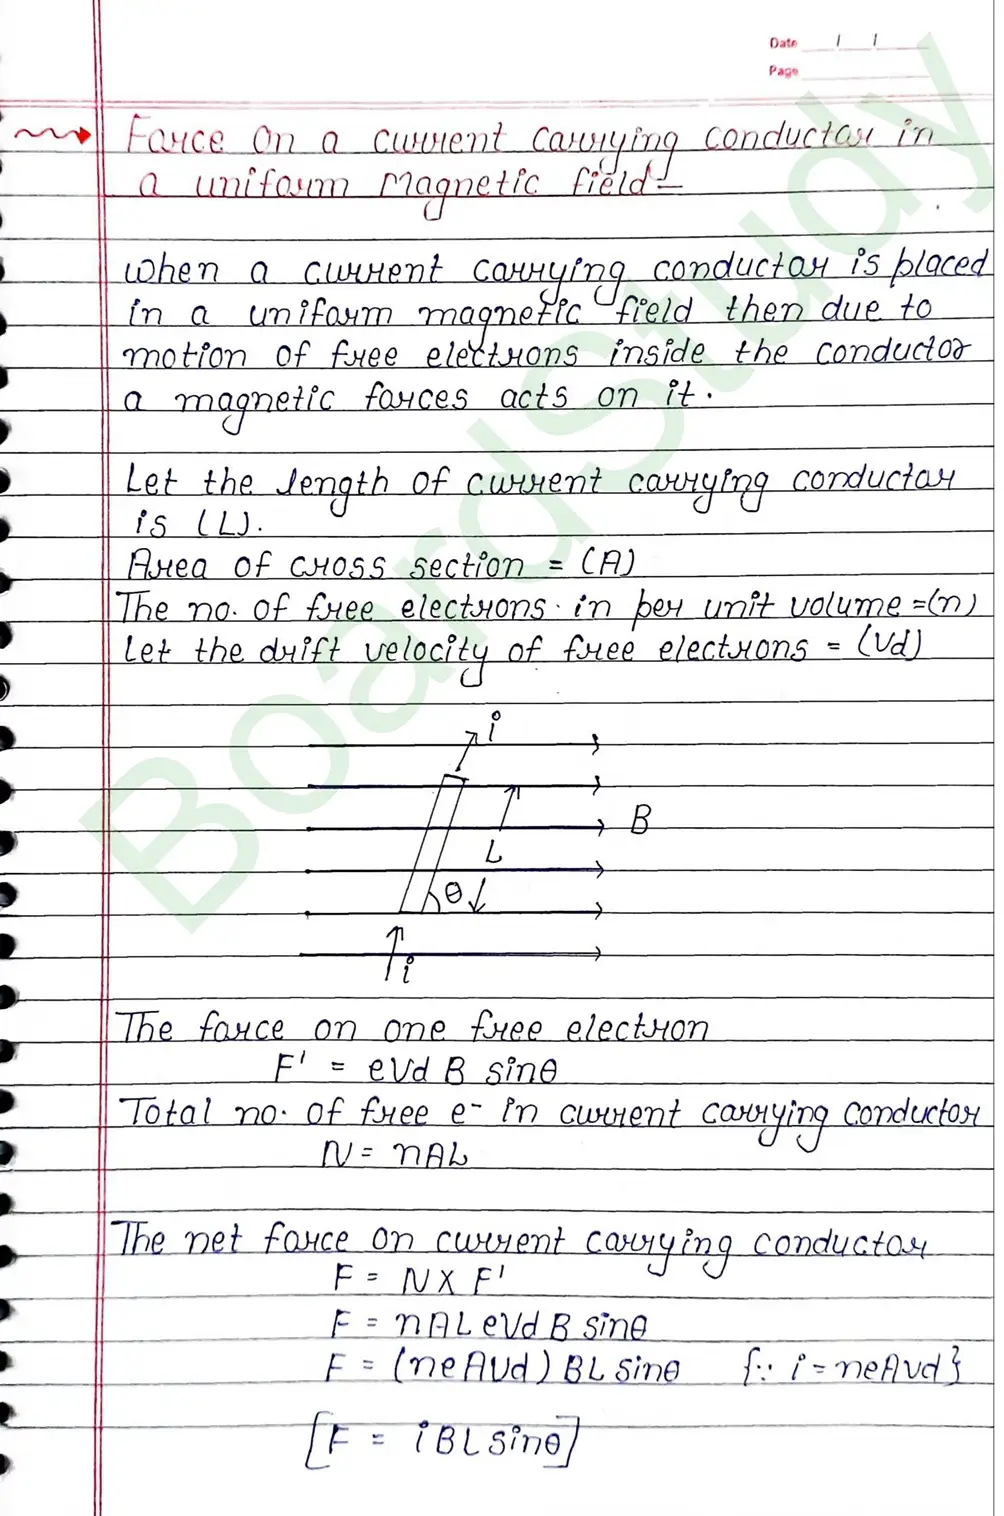 Date / /
Page
Force on a current carrying conductor in
a uniform Magnetic field-
When a current carrying conductor is placed
in a uniform magnetic field then due to
motion of free electrons inside the conductor
a magnetic forces acts on it.
Let the length of current carrying conductor
is (L).
Area of cross section = (A)
The no. of free electrons in per unit volume =(n)
Let the drift velocity of free electrons = (Vd)
i
B
L
θ
i
The force on one free electron
F' = eVd B sinθ
Total no. of free e- in current carrying conductor
N = nAL
The net force on current carrying conductor
F = N X F'
F = nAL eVd B sinθ
F = (neAVd) BL sinθ {∵ i = neAvd}
[F = iBLsinθ]
BoardStudy